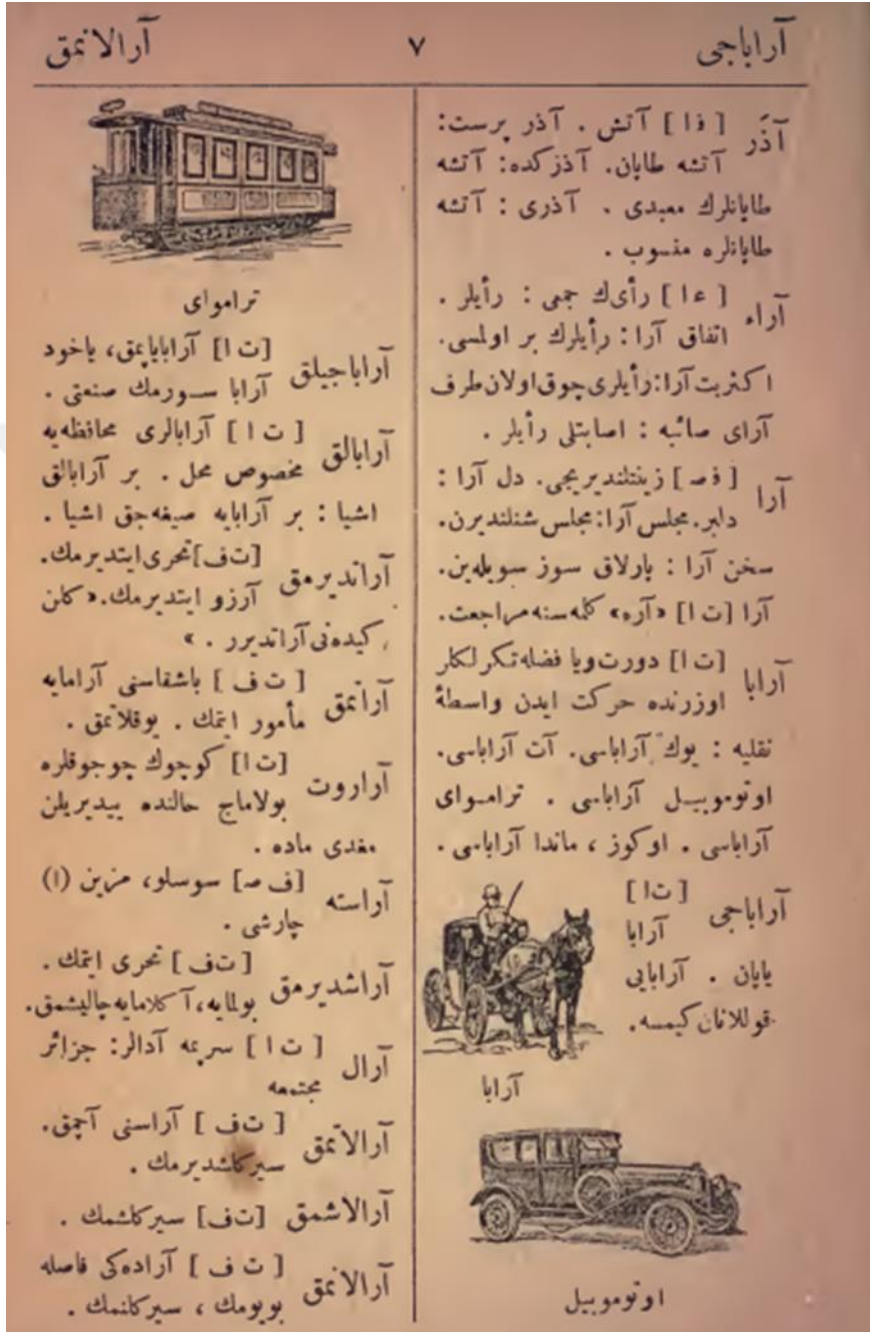 آراباجی ٧ آرالانمق
آذَر [ فا ] آتش . آذر پرست :
آتشه طاپان. آذرکده : آتشه
طاپانلرك معبدی . آذری : آتشه
طاپانلره منسوب .
آراء [ عا ] رأیك جمعی : رأیلر .
اتفاق آرا : رأیلرك بر اولمسی.
اکثریت آرا : رأیلری چوق اولان طرف
آرای صائبه : اصابتلی رأیلر .
آرا [ فص ] زینتلندیریجی. دل آرا :
دلبر. مجلس آرا : مجلس شنلندیرن.
سخن آرا : پارلاق سوز سویله‌ین.
آرا [ت ا] «آره» کله‌سنه مراجعت.
آرابا [ت ا] دورت ویا فضله تکرلکلر
اوزرنده حرکت ایدن واسطهٔ
نقلیه : یوك آراباسی. آت آراباسی.
اوتوموبیـل آراباسی . ترامـوای
آراباسی . اوکوز ، ماندا آراباسی .
آراباجی [ت ا]
آرابا
یاپان . آرابایی
قوللانان کیمسه.
آرابا
اوتوموبیل
تراموای
آراباجیلق [ت ا] آرابایاپمق، یاخود
آرابا سـورمك صنعتی .
آرابالق [ ت ا ] آرابالری محافظه‌یه
مخصوص محل . بر آرابالق
اشیا : بر آرابایه صیغه‌جق اشیا .
آراندیرمق [ت‌ف] تحری ایتدیرمك.
آرزو ایتدیرمك. «کلن
کیده‌نی آراتدیرر . »
آراتمق [ ت ف ] باشقاسنی آرامایه
مأمور ایتمك . یوقلاتمق .
آراروت [ت ا] کوچوك چوجوقلره
بولاماج حالنده ییدیریلن
مغدی ماده .
آراسته [ف ص] سوسلو، مزین (ا)
چارشی .
آراشدیرمق [ت‌ف] تحری ایتمك .
بولمایه، آکلامایه چالیشمق.
آرال [ ت ا ] سریمه آدالر : جزائر
مجتمعه
آرالاتمق [ ت‌ف ] آراسنی آچمق.
سیرکلشدیرمك .
آرالاشمق [ت‌ف] سیرکلشمك .
آرالانمق [ ت ف ] آراده‌کی فاصله
بویومك ، سیرکلنمك .